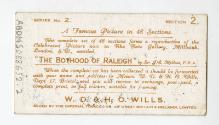 SERIES No. 2. SECTION 2.
A Famous Picture in 48 Sections.
The complete set of 48 sections forms a reproduction of the
Celebrated Picture now in The Tate Gallery, Millbank,
London, S.W., entitled
"THE BOYHOOD OF RALEIGH" by Sir J. E. Millais, P.R.A.
When the complete set has been collected it should be forwarded
with your name and address to Messrs. W. D. & H. O. Wills,
Dept. 17, Bristol, and you will receive in exchange, post free, a
complete print, in full colours, suitable for framing.
W. D. & H. O. WILLS.
ISSUED BY THE IMPERIAL TOBACCO CO. (OF GREAT BRITAIN & IRELAND), LIMITED.